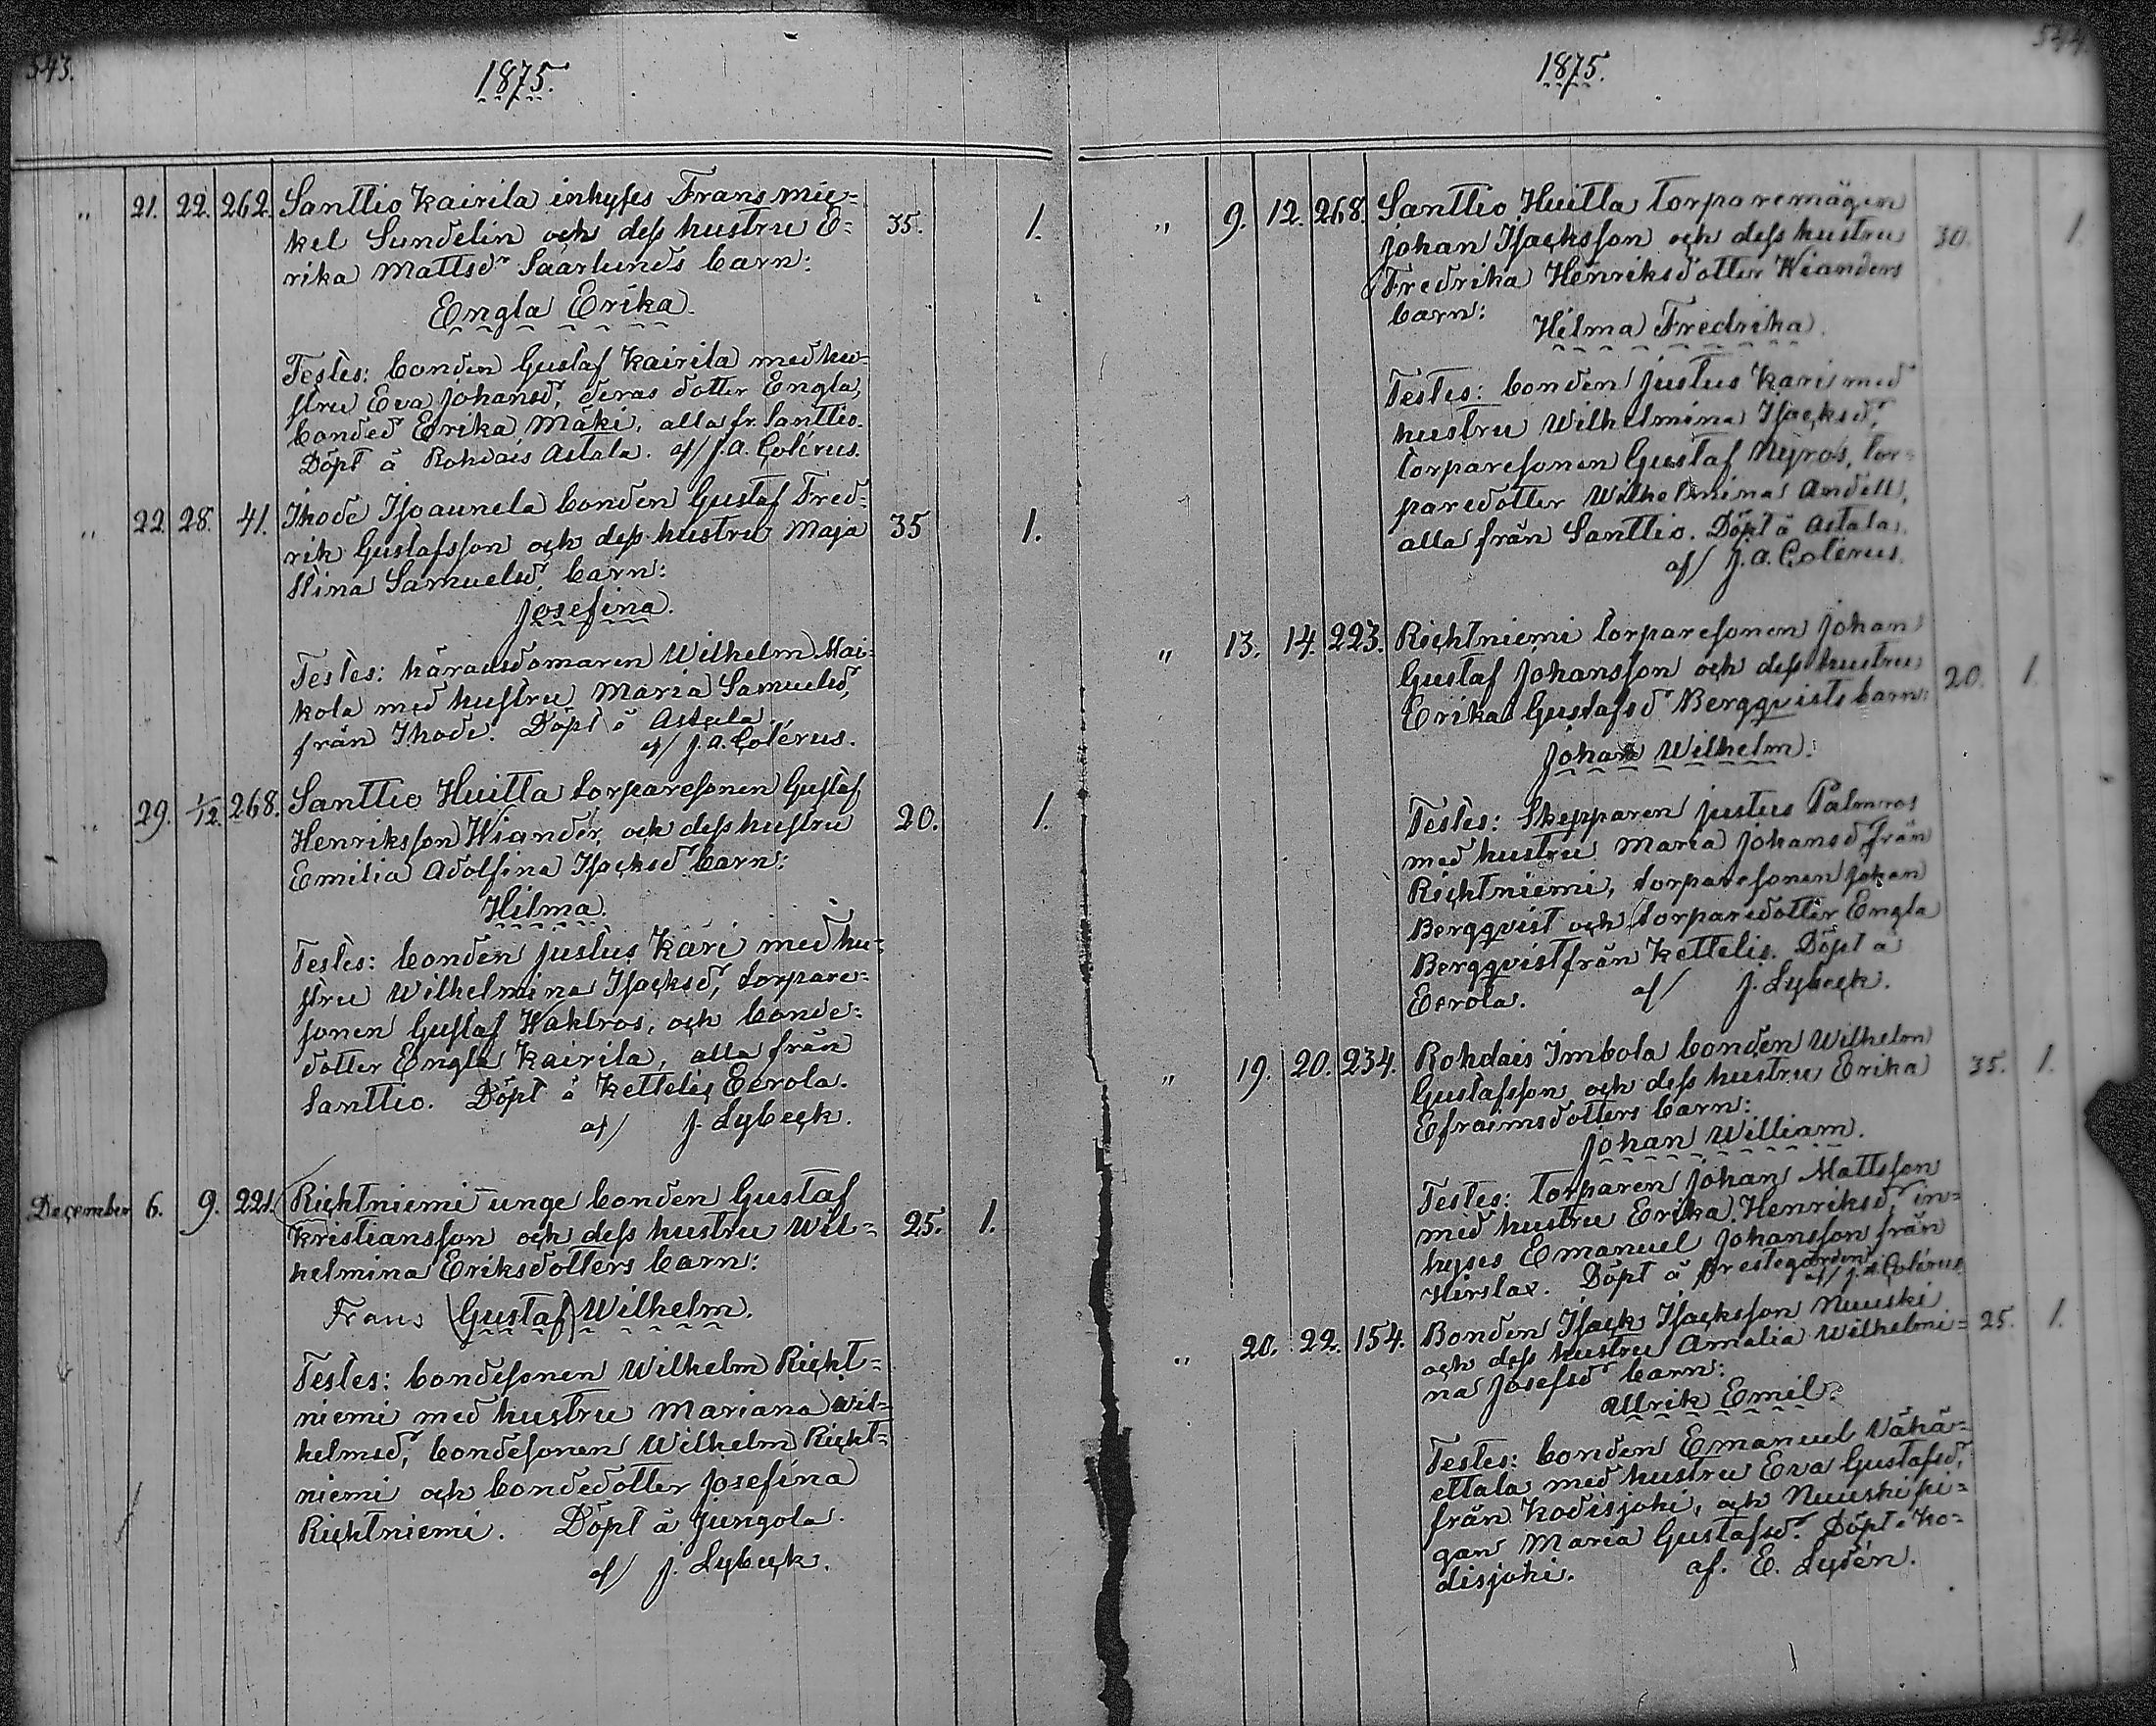 543.
1875.
" 21. 22. 262. Santtio Kairila inhyses Frans Mic-
kel Sundelin och dess hustru E- 35. 1.
rika Mattsdr Saarlunds barn:
Engla Erika.
Testes: bonden Gustaf Kairila med hu-
stru Eva Johansd, deras dotter Engla,
bonded Erika Mäki, alla fr. Santtio.
Döpt å Rohdais Astala. af/ J. A. Colérus.
" 22 28. 41. Ihode Isoaunela bonden Gustaf Fred-
rik Gustafsson och dess hustru Maja 35 1.
Stina Samuelsd. barn:
Josefina.
Testes: häradsdomaren Wilhelm Mai-
kola med hustru Maria Samuelsd,
från Ihode. Döpt å Astala.
af/ J. A. Colérus.
" 29. 1/12. 268. Santtio Huitla torparesonen Gustaf
Henriksson Wiander, och dess hustru 20. 1.
Emilia Adolfina Isacksd barn:
Hilma.
Testes: bonden Justus Käri med hu-
stru Wilhelmina Isacksd, torpare-
sonen Gustaf Wahlros, och bonde-
dotter Engla Kairila, alla från
Santtio. Döpt å Kettelis Eerola.
af/ J. Lybeck.
December 6. 9. 221. Richtniemi unge bonden Gustaf
Kristiansson och dess hustru Wil- 25. 1.
helmina Eriksdotters barn:
Frans (Gustaf) Wilhelm.
Testes: bondesonen Wilhelm Richt-
niemi med hustru Mariana Wil-
helmsd, bondesonen Wilhelm Richt-
niemi och bondedotter Josefina
Richtniemi. Döpt å Jungola.
af/ J. Lybeck.
544.
1875.
" 9. 12. 268. Santtio Huitla torparemågen
Johan Isacksson och dess hustru 30. 1.
Fredrika Henriksdotter Wianders
barn:
Hilma Fredrika.
Testes: bonden Justus Käri med
hustru Wilhelmina Isacksd,
torparesonen Gustaf Nyros, tor-
paredotter Wilhelmina Andell,
alla från Santtio. Döpt å Astala.
af/ J. A. Colérus.
" 13. 14. 223. Richtniemi torparesonen Johan
Gustaf Johansson och dess hustru 20. 1.
Erika Gustafsd Bergqvists barn:
Johan Wilhelm.
Testes: Skepparen Justus Palmros
med hustru Maria Johansd från
Richtniemi, torparesonen Johan
Bergqvist och torparedotter Engla
Bergqvist från Kettelis. Döpt å
Eerola. af/ J. Lybeck.
" 19. 20. 234. Rohdais Imbola bonden Wilhelm
Gustafsson och dess hustru Erika 35. 1.
Efraimsdotters barn:
Johan William.
Testes: torparen Johan Mattsson
med hustru Erika Henriksd, in-
hyses Emanuel Johansson från
Hirslax. Döpt å prestegården. af/ J. A. Colérus
" 20. 22. 154. Bonden Isack Isacksson Nuuski
och dess hustru Amalia Wilhelmi- 25. 1.
na Josefsd barn:
Ulrik Emil.
Testes: bonden Emanuel Vähä-
ettala med hustru Eva Gustafsd,
från Kodisjoki, och Nuuski pi-
gan Maria Gustafsd. Döpt å Ko-
disjoki. af. E. Lydén.